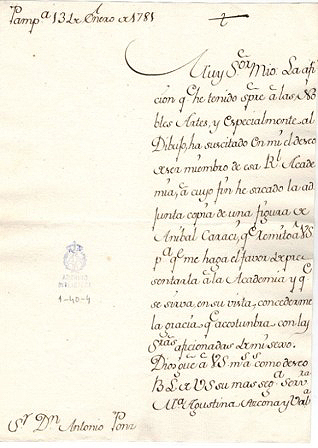 Pamp.a 13 de Enero de 1781
Muy S.or Mio. La afi
cion q.e he tenido spre à las No
bles Artes, y Especialmente al
Dibujo, ha suscitado en mi el deseo
de ser miembro de esa R.l Acade
mia, à cuyo fin he sacado la ad
junta copia de una figura de
Anibal Caraci, q.e remito à VS
p.a q.e me haga el favor de pre
sentarla à la Academia y q.e
se sirva, en su vista, concederme
la gracia q.e accostumbra con las
S.ras aficionadas de mi sexo.
Dios gue à VS m.s a.s como deseo
B L M de VS su mas seg.a serv.ra
M.a Agustina Azcona y
S.r D.n Antonio Ponz
ARCHIVO
1-40-4